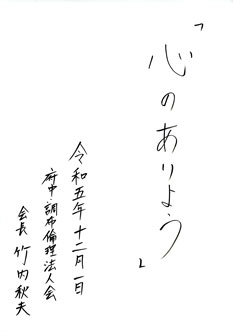 「心のありよう」
令和五年十二月一日
府中・調布倫理法人会
会長 竹内秋夫